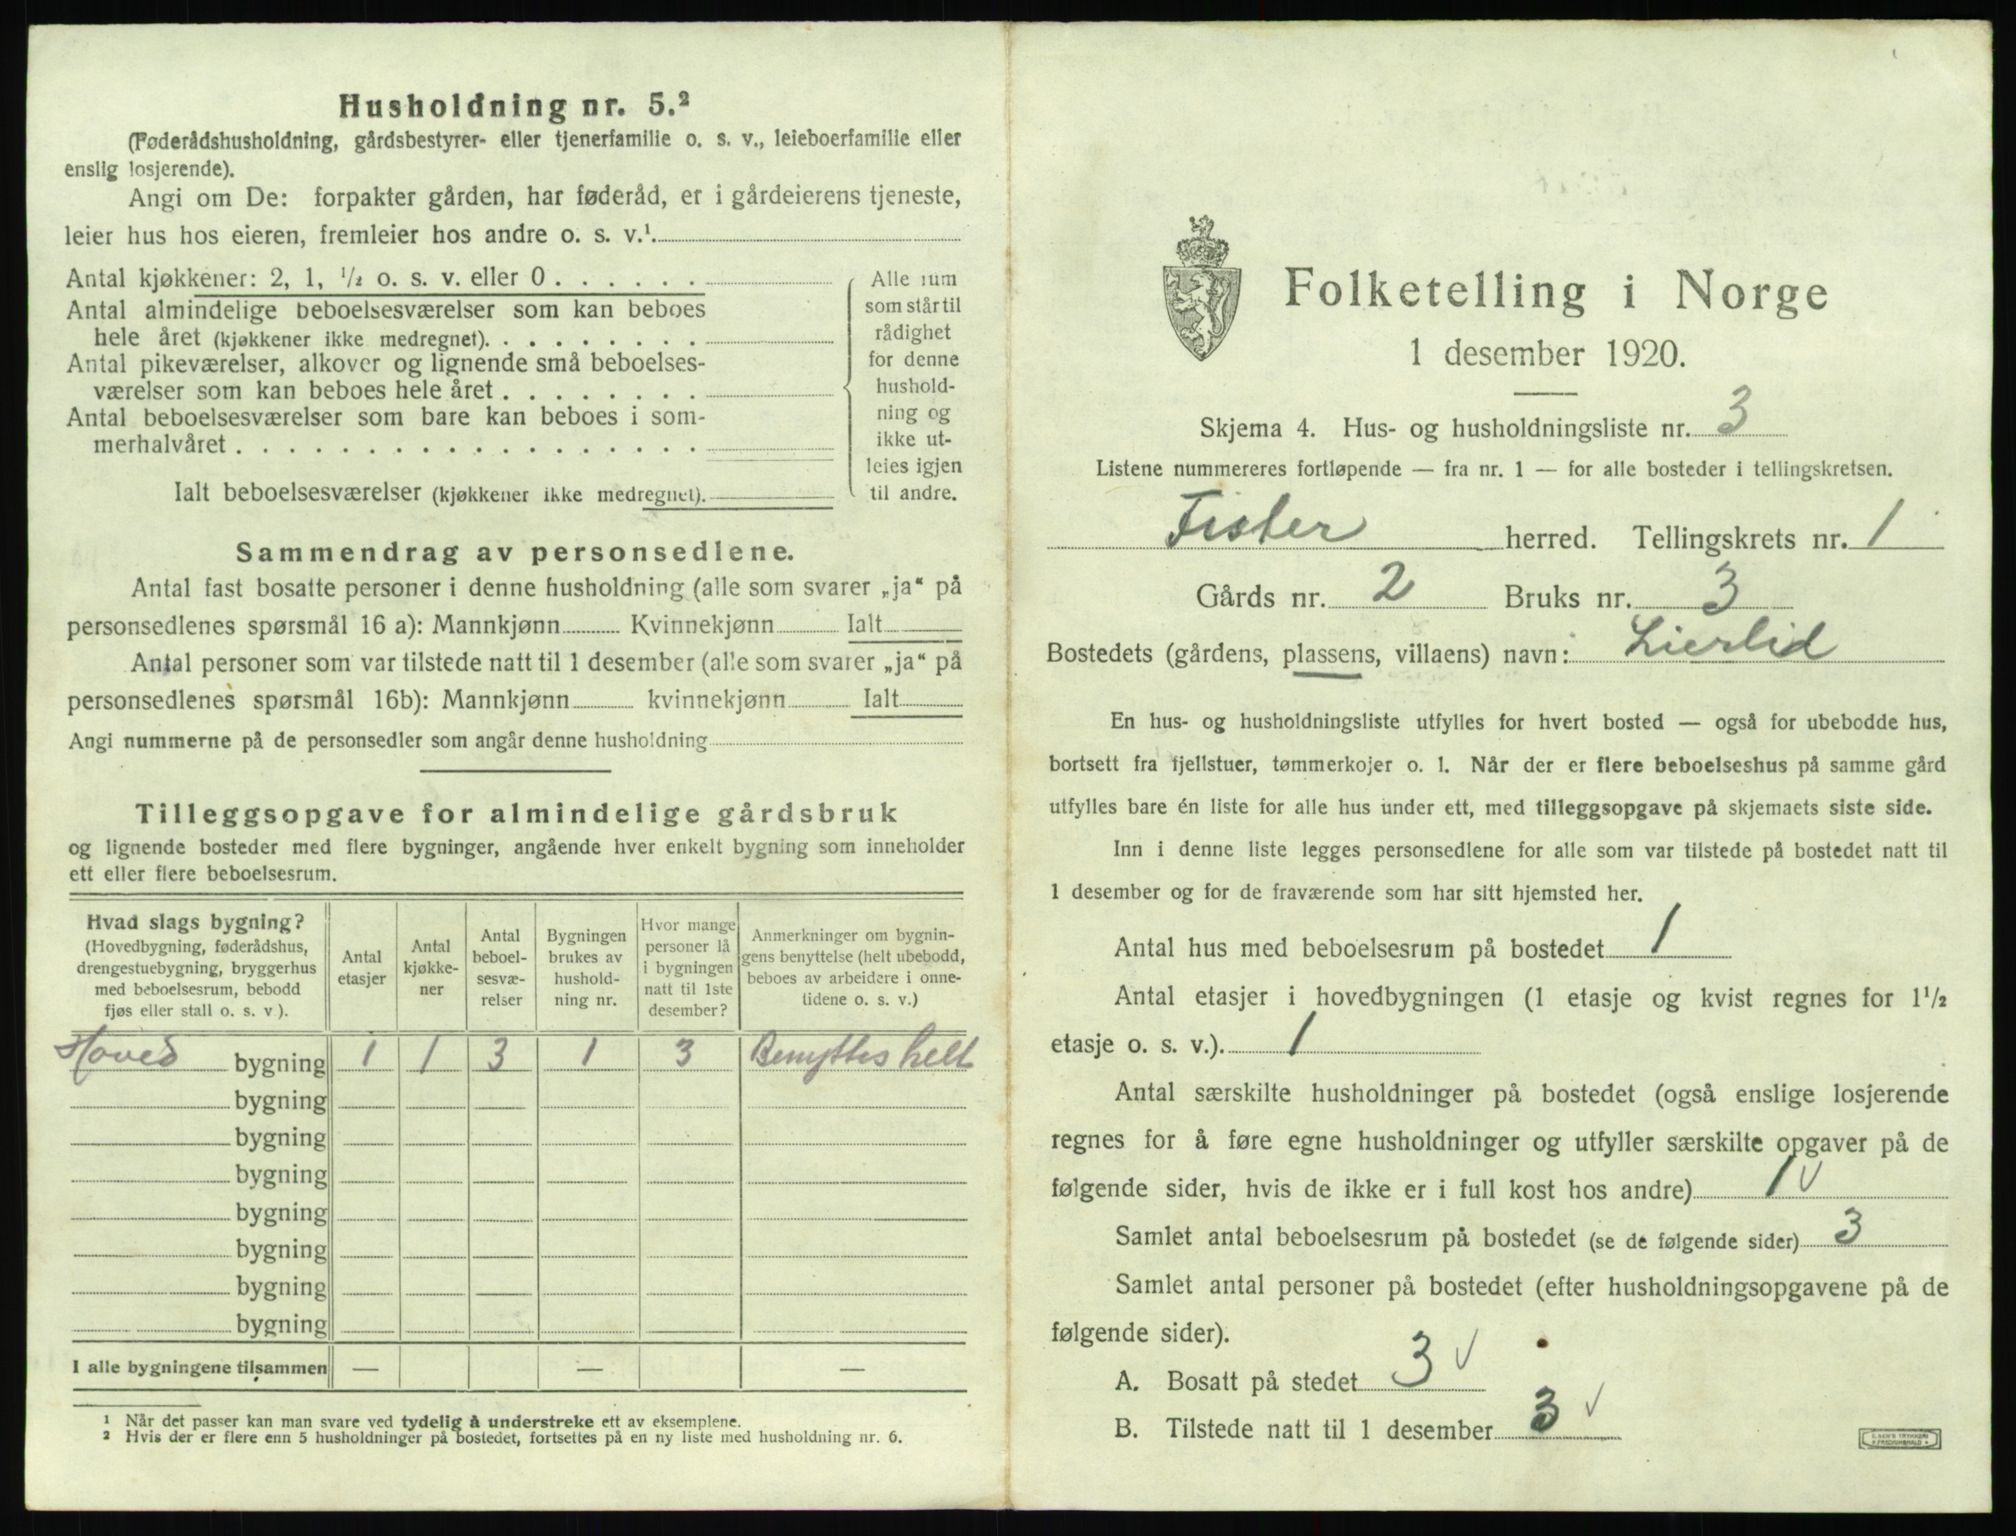 Husholdning nr. 5.²
(Føderådshusholdning, gårdsbestyrer- eller tjenerfamilie o. s. v., leieboerfamilie eller
enslig losjerende).
Angi om De: forpakter gården, har føderåd, er i gårdeierens tjeneste,
leier hus hos eieren, fremleier hos andre o. s. v.¹
Antal kjøkkener: 2, 1, ½ o. s. v. eller 0 . . . . . .
Antal almindelige beboelsesværelser som kan beboes
hele året (kjøkkener ikke medregnet). . . . . . . . .
Antal pikeværelser, alkover og lignende små beboelses-
værelser som kan beboes hele året . . . . . . . .
Antal beboelsesværelser som bare kan beboes i som-
merhalvåret . . . . . . . . . . . . . . . . . .
Ialt beboelsesværelser (kjøkkener ikke medregnet).
Alle rum
som står til
rådighet
for denne
hushold-
ning og
ikke ut-
leies igjen
til andre.
Sammendrag av personsedlene.
Antal fast bosatte personer i denne husholdning (alle som svarer „ja“ på
personsedlenes spørsmål 16 a): Mannkjønn Kvinnekjønn Ialt
Antal personer som var tilstede natt til 1 desember (alle som svarer „ja“ på
personsedlenes spørsmål 16b): Mannkjønn kvinnekjønn Ialt
Angi nummerne på de personsedler som angår denne husholdning
Tilleggsopgave for almindelige gårdsbruk
og lignende bosteder med flere bygninger, angående hver enkelt bygning som inneholder
ett eller flere beboelsesrum.
Hvad slags bygning?
(Hovedbygning, føderådshus,
drengestuebygning, bryggerhus
med beboelsesrum, bebodd
fjøs eller stall o. s. v ).
Antal
etasjer
Antal
kjøkke-
ner
Antal
beboel-
sesvæ-
relser
Bygningen
brukes av
hushold-
ning nr.
Hvor mange
personer lå
i bygningen
natt til 1ste
desember?
Anmerkninger om bygnin-
gens benyttelse (helt ubebodd,
beboes av arbeidere i onne-
tidene o. s. v.)
Hoved bygning 1 1 3 1 3 Benyttes helt
bygning
bygning
bygning
bygning
bygning
bygning
bygning
I alle bygningene tilsammen — — —
1 Når det passer kan man svare ved tydelig å understreke ett av eksemplene.
2 Hvis der er flere enn 5 husholdninger på bostedet, fortsettes på en ny liste med husholdning nr. 6.
Folketelling i Norge
1 desember 1920.
Skjema 4. Hus- og husholdningsliste nr. 3
Listene nummereres fortløpende — fra nr. 1 — for alle bosteder i tellingskretsen.
Fister herred. Tellingskrets nr. 1
Gårds nr. 2 Bruks nr. 3
Bostedets (gårdens, plassens, villaens) navn: Lierlid
En hus- og husholdningsliste utfylles for hvert bosted — også for ubebodde hus,
bortsett fra fjellstuer, tømmerkojer o. l. Når der er flere beboelseshus på samme gård
utfylles bare én liste for alle hus under ett, med tilleggsopgave på skjemaets siste side.
Inn i denne liste legges personsedlene for alle som var tilstede på bostedet natt til
1 desember og for de fraværende som har sitt hjemsted her.
Antal hus med beboelsesrum på bostedet 1
Antal etasjer i hovedbygningen (1 etasje og kvist regnes for 1½
etasje o. s. v.). 1
Antal særskilte husholdninger på bostedet (også enslige losjerende
regnes for å føre egne husholdninger og utfyller særskilte opgaver på de
følgende sider, hvis de ikke er i full kost hos andre) 1 √
Samlet antal beboelsesrum på bostedet (se de følgende sider) 3
Samlet antal personer på bostedet (efter husholdningsopgavene på de
følgende sider).
A. Bosatt på stedet 3 √
B. Tilstede natt til 1 desember 3 √